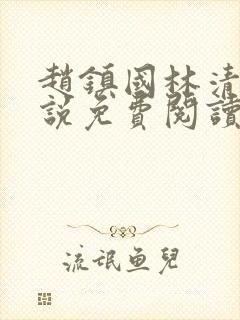 趙鎮國林清
說免費閱讀
流氓鱼兒